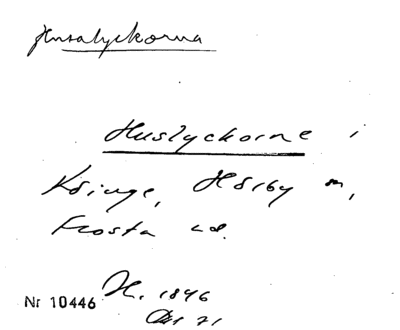 Husalyckorna
Huslyckorne i
Köinge, Hörby sn,
Frosta hd.
Nr 10446 H. 1846
Akt 71